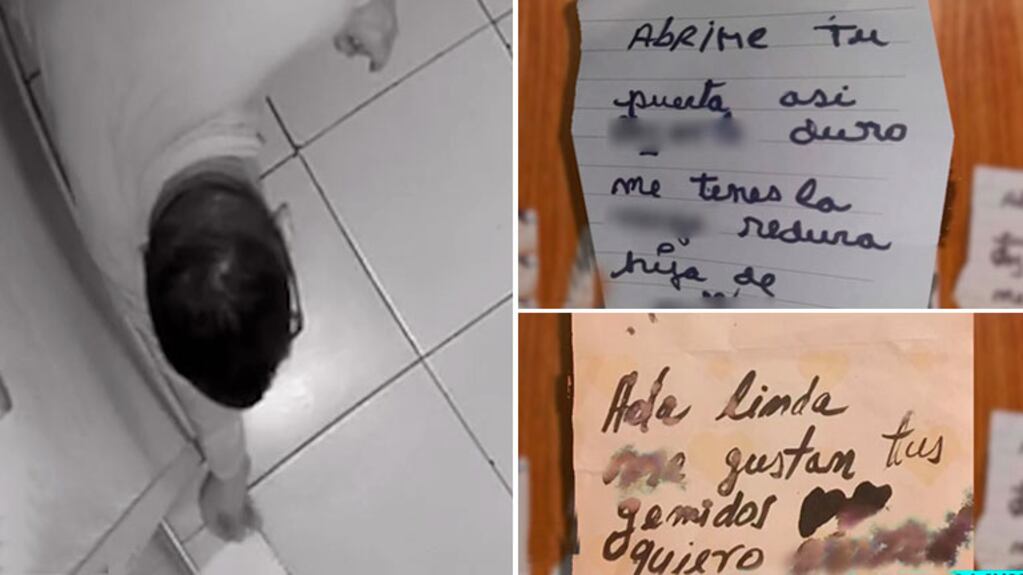 ABRIME TU
puerta asi
duro
me tenes la
redura
hija de
Ada linda
me gustan tus
gemidos
quiero